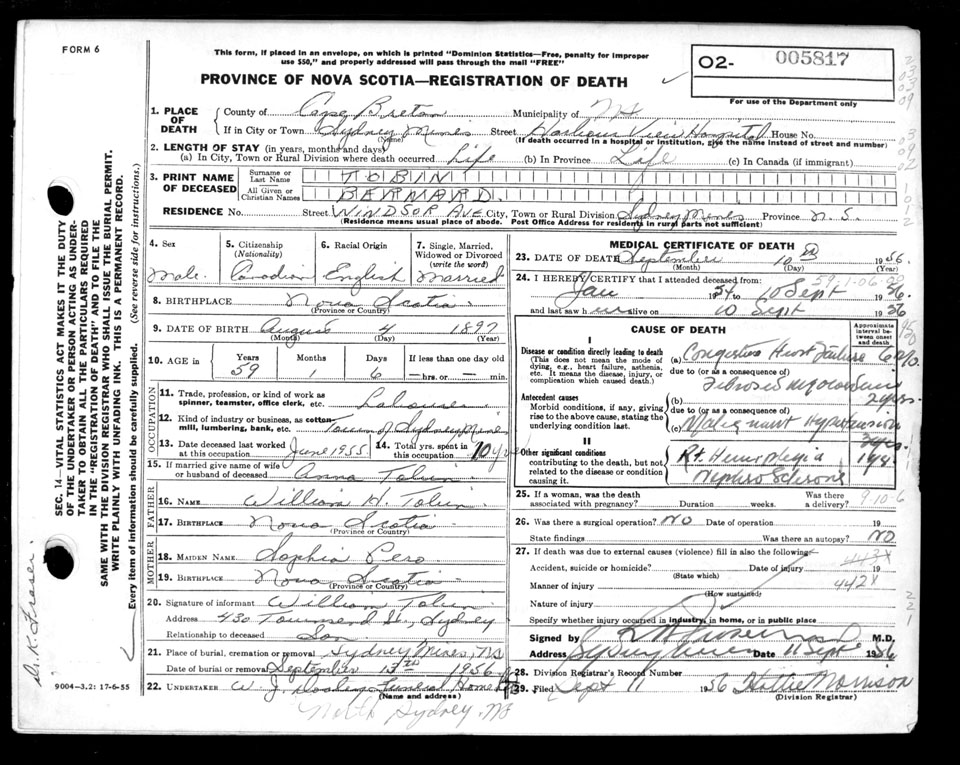 FORM 6
This form, if placed in an envelope, on which is printed "Dominion Statistics—Free, penalty for improper
use $50," and properly addressed will pass through the mail "FREE"
PROVINCE OF NOVA SCOTIA—REGISTRATION OF DEATH
02- 005817
For use of the Department only
1. PLACE OF DEATH
County of Cape Breton Municipality of
If in City or Town Sydney Mines Street Harbour View Hospital House No.
(Name) (If death occurred in a hospital or institution, give the name instead of street and number)
2. LENGTH OF STAY (in years, months and days)
(a) In City, Town or Rural Division where death occurred Life (b) In Province Life (c) In Canada (if immigrant)
3. PRINT NAME OF DECEASED
Surname or Last Name TOBIN
All Given or Christian Names BERNARD.
RESIDENCE No. Street WINDSOR AVE City, Town or Rural Division Sydney Mines Province N.S.
(Residence means usual place of abode. Post Office Address for residents in rural parts not sufficient)
4. Sex Male.
5. Citizenship (Nationality) Canadian
6. Racial Origin English
7. Single, Married, Widowed or Divorced (write the word) Married
8. BIRTHPLACE Nova Scotia
(Province or Country)
9. DATE OF BIRTH August 4 1897
(Month) (Day) (Year)
10. AGE in Years Months Days If less than one day old
59 1 6 hrs. or min.
OCCUPATION
11. Trade, profession, or kind of work as spinner, teamster, office clerk, etc. Labourer
12. Kind of industry or business, as cotton-mill, lumbering, bank, etc. Town of Sydney Mines
13. Date deceased last worked at this occupation June 1955.
14. Total yrs. spent in this occupation 10 yrs
15. If married give name of wife or husband of deceased Anna Tobin
FATHER
16. NAME William H. Tobin
17. BIRTHPLACE Nova Scotia
(Province or Country)
MOTHER
18. MAIDEN NAME Sophia Pero
19. BIRTHPLACE Nova Scotia
(Province or Country)
20. Signature of informant William Tobin
Address 430 Townsend St., Sydney
Relationship to deceased Son
21. Place of burial, cremation or removal Sydney Mines, NS
Date of burial or removal September 13TH 1956
22. UNDERTAKER W. J. Dooley Funeral Home
(Name and address)
North Sydney, NS
MEDICAL CERTIFICATE OF DEATH
23. DATE OF DEATH September 10th 1956.
(Month) (Day) (Year)
24. I HEREBY CERTIFY that I attended deceased from:
Jan 1954 to 10 Sept 1956.
and last saw h im alive on 10 Sept 1956
CAUSE OF DEATH
Approximate interval between onset and death
I
Disease or condition directly leading to death
(This does not mean the mode of dying, e.g., heart failure, asthenia, etc. It means the disease, injury, or complication which caused death.)
(a) Congestive Heart Failure
due to (or as a consequence of)
Antecedent causes
Morbid conditions, if any, giving rise to the above cause, stating the underlying condition last.
(b) Fibrosis Myocardium 2 yrs.
due to (or as a consequence of)
(c) Malignant Hypertension
II
Other significant conditions
contributing to the death, but not related to the disease or condition causing it.
Rt. Hemiplegia
Nephro Sclerosis
25. If a woman, was the death associated with pregnancy? Duration weeks. Was there a delivery?
26. Was there a surgical operation? NO Date of operation 19
State findings Was there an autopsy? NO
27. If death was due to external causes (violence) fill in also the following:
Accident, suicide or homicide? Date of injury 19
(State which)
Manner of injury 442X
(How sustained)
Nature of injury
Specify whether injury occurred in industry, in home, or in public place
Signed by M.D.
Address Sydney Mines Date 11 Sept 1956
28. Division Registrar's Record Number
29. Filed Sept 11 1956 Hettie Morrison
(Division Registrar)
SEC. 14—VITAL STATISTICS ACT MAKES IT THE DUTY
OF THE UNDERTAKER OR PERSON ACTING AS UNDER-
TAKER TO OBTAIN ALL THE PARTICULARS REQUIRED
IN THE "REGISTRATION OF DEATH" AND TO FILE THE
SAME WITH THE DIVISION REGISTRAR WHO SHALL ISSUE THE BURIAL PERMIT.
WRITE PLAINLY WITH UNFADING INK. THIS IS A PERMANENT RECORD.
Every item of information should be carefully supplied. (See reverse side for instructions).
Dr. K. Fraser.
9004-3.2: 17-6-55